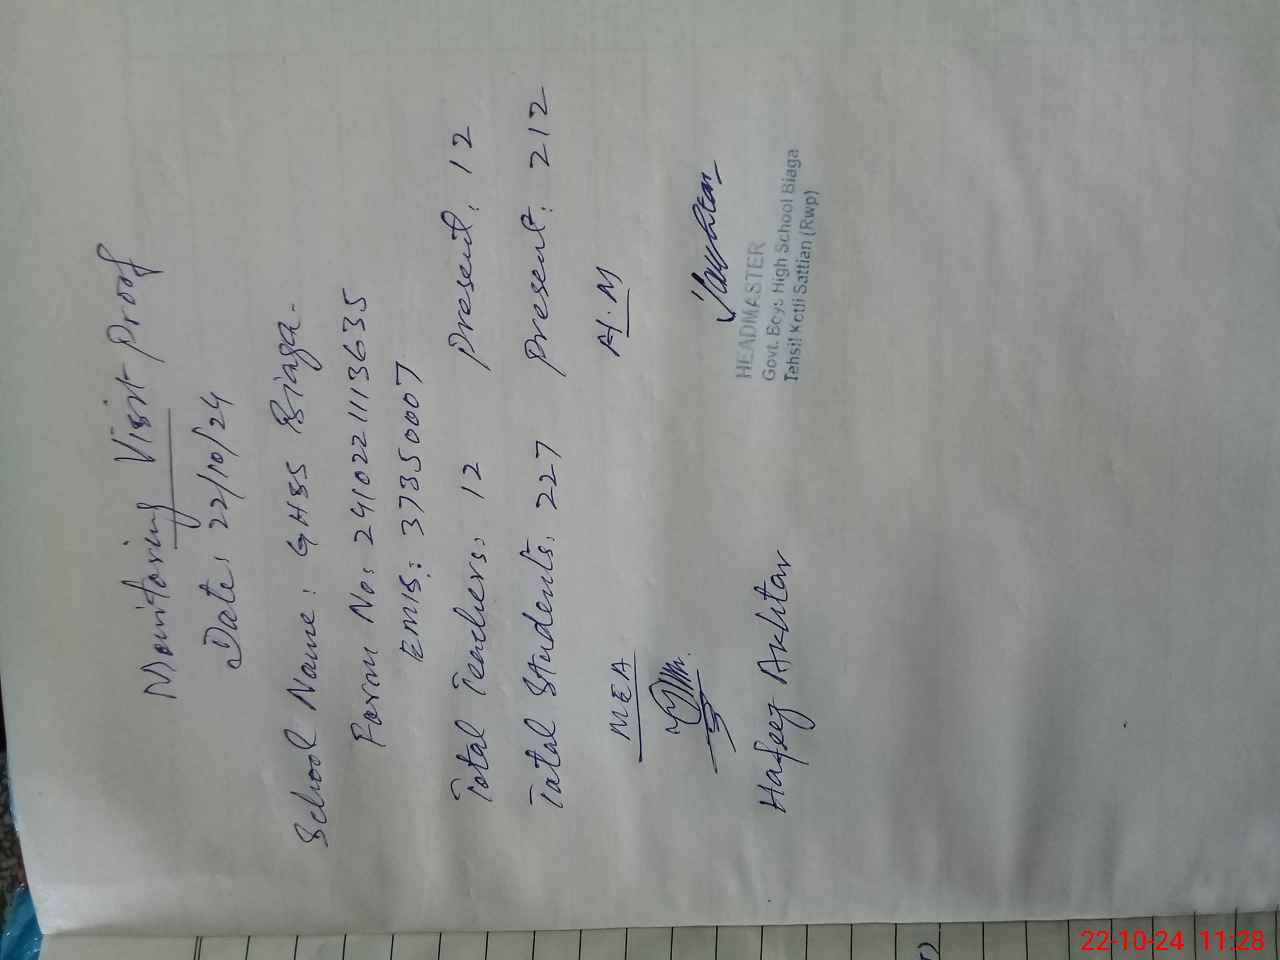 Monitoring Visit Proof
Date: 22/10/24
School Name: GHSS Biaga.
Form No: 241022111113635
EMIS: 37350007
Total Teachers: 12 Present: 12
Total Students: 227 Present: 212
MEA H.M
HEADMASTER
Govt. Boys High School Biaga
Tehsil Kotli Sattian (Rwp)
Hafeez Akhtar
22-10-24 11:28